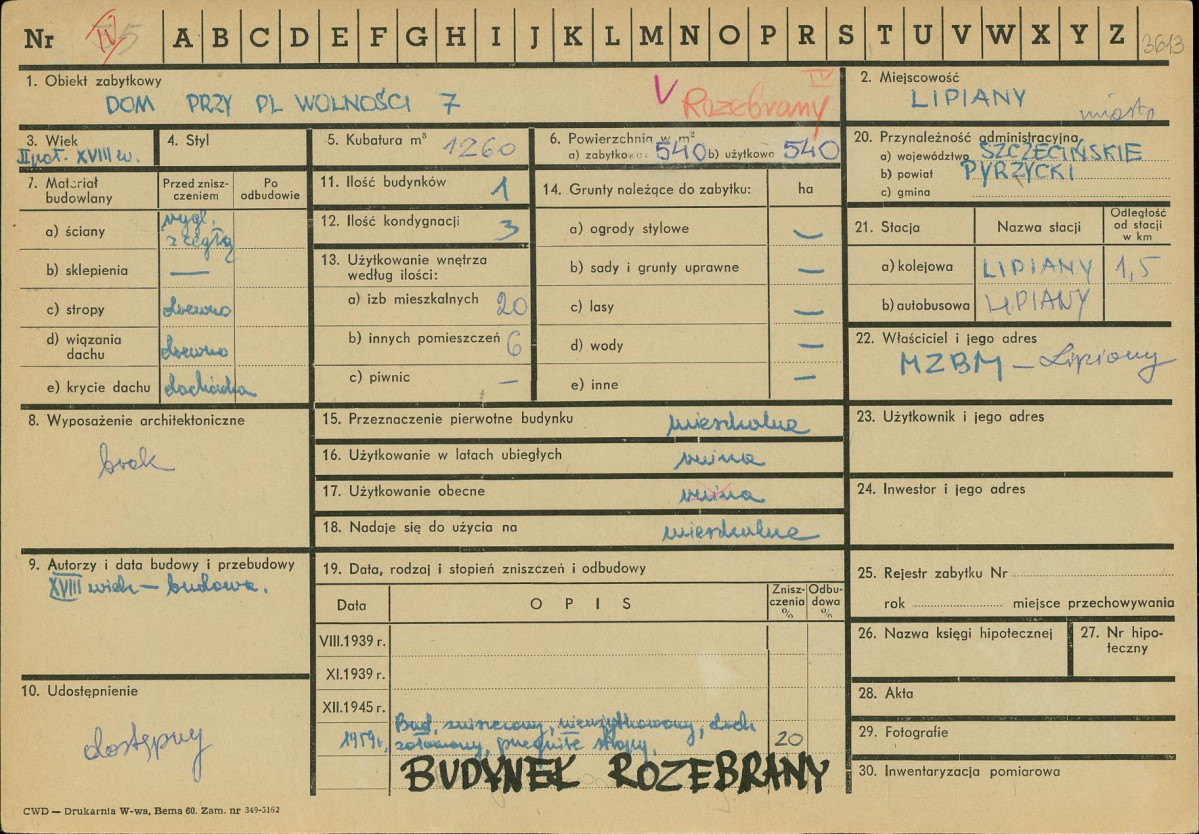 Nr IV 5 A B C D E F G H I J K L M N O P R S T U V W X Y Z 3613
1. Obiekt zabytkowy
DOM PRZY PL WOLNOŚCI 7
V Rozebrany IV
2. Miejscowość
LIPIANY
miasto
3. Wiek
II poł. XVIII w.
4. Styl
5. Kubatura m³ 1260
6. Powierzchnia w m²
a) zabytkowa 540 b) użytkowa 540
20. Przynależność administracyjna
a) województwo SZCZECIŃSKIE
b) powiat PYRZYCKI
c) gmina
7. Materiał budowlany
Przed znisz-
czeniem
Po
odbudowie
a) ściany
z cegłą
b) sklepienia —
c) stropy drewno
d) wiązania
dachu drewno
e) krycie dachu dachówka
11. Ilość budynków 1
12. Ilość kondygnacji 3
13. Użytkowanie wnętrza
według ilości:
a) izb mieszkalnych 20
b) innych pomieszczeń 6
c) piwnic —
14. Grunty należące do zabytku: ha
a) ogrody stylowe —
b) sady i grunty uprawne —
c) lasy —
d) wody —
e) inne —
21. Stacja
Nazwa stacji
Odległość
od stacji
w km
a) kolejowa LIPIANY 1,5
b) autobusowa LIPIANY
22. Właściciel i jego adres
MZBM — Lipiany
8. Wyposażenie architektoniczne
brak
15. Przeznaczenie pierwotne budynku mieszkalne
16. Użytkowanie w latach ubiegłych ruina
17. Użytkowanie obecne ruina
18. Nadaje się do użycia na mieszkalne
23. Użytkownik i jego adres
24. Inwestor i jego adres
9. Autorzy i data budowy i przebudowy
XVIII wiek — budowa.
19. Data, rodzaj i stopień zniszczeń i odbudowy
Data
OPIS
Znisz-
czenia
%
Odbu-
dowa
%
VIII.1939 r.
XI.1939 r.
XII.1945 r.
1959 r. Bud. zniszczony, nieużytkowany, dach
załamany, przegniłe stropy. 20
BUDYNEK ROZEBRANY
25. Rejestr zabytku Nr
rok miejsce przechowywania
26. Nazwa księgi hipotecznej
27. Nr hipo-
teczny
10. Udostępnienie
dostępny
28. Akta
29. Fotografie
30. Inwentaryzacja pomiarowa
CWD — Drukarnia W-wa, Bema 60. Zam. nr 349-5162